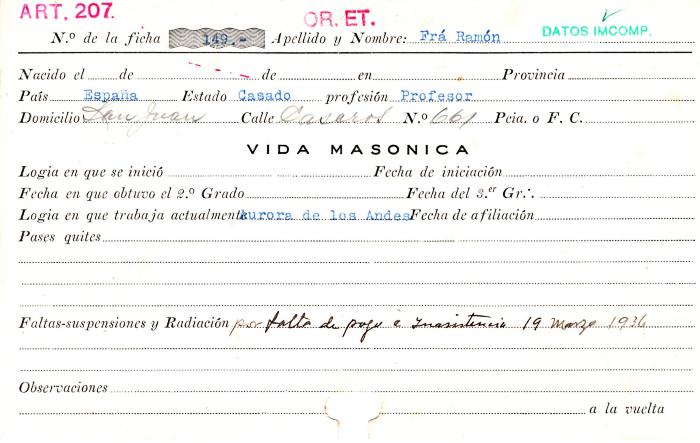 ART. 207.
OR. ET.
DATOS IMCOMP.
N.º de la ficha 149.- Apellido y Nombre: Frá Ramón
Nacido el de de en Provincia
País España Estado Casado profesión Profesor
Domicilio San Juan Calle Caseros N.º 661 Pcia. o F. C.
VIDA MASONICA
Logia en que se inició Fecha de iniciación
Fecha en que obtuvo el 2.º Grado Fecha del 3.er Gr∴
Logia en que trabaja actualmente Aurora de los Andes Fecha de afiliación
Pases quites
Faltas-suspensiones y Radiación por falta de pago e Inasistencia 19 Marzo 1936
Observaciones
a la vuelta